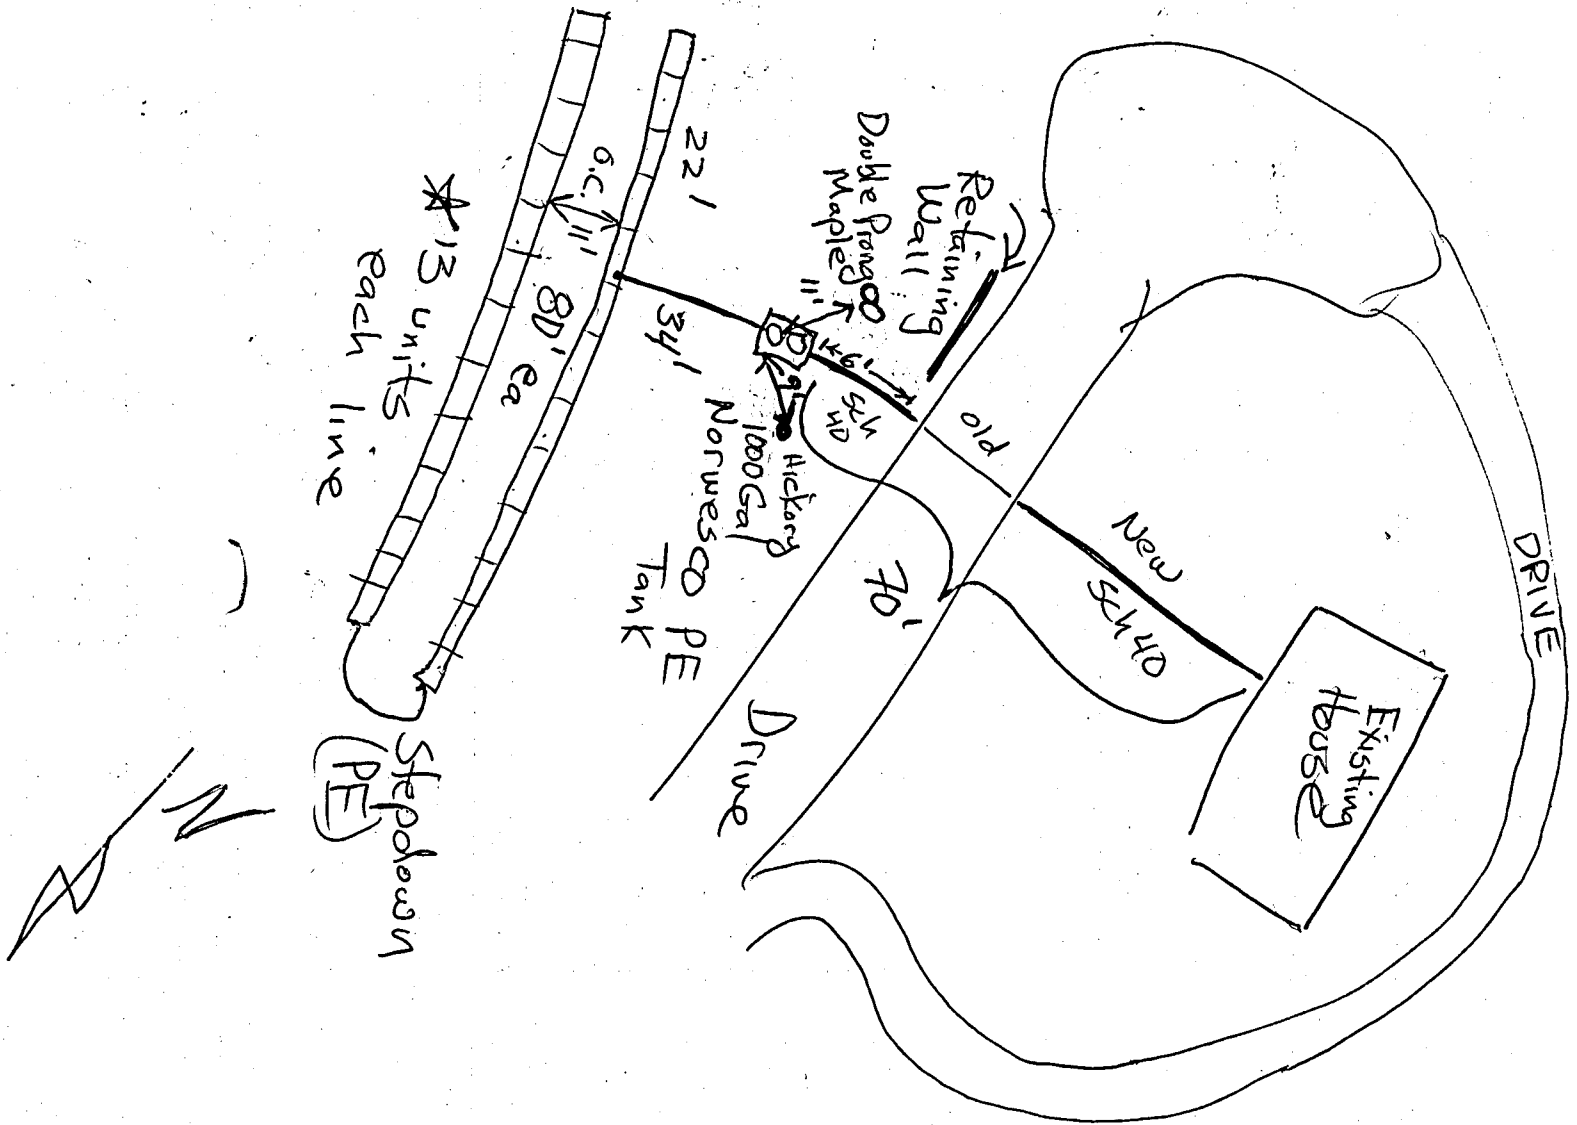 DRIVE
Existing
House
New
Sch 40
old
70'
Drive
Retaining
Wall
Double Prong
Maple
11'
6'
Sch
40
9'
Hickory
1000 Gal
Norwesco PE
Tank
34'
22'
O.C.
11'
80' ea
* 13 units
each line
Stepdown
(PE)
N